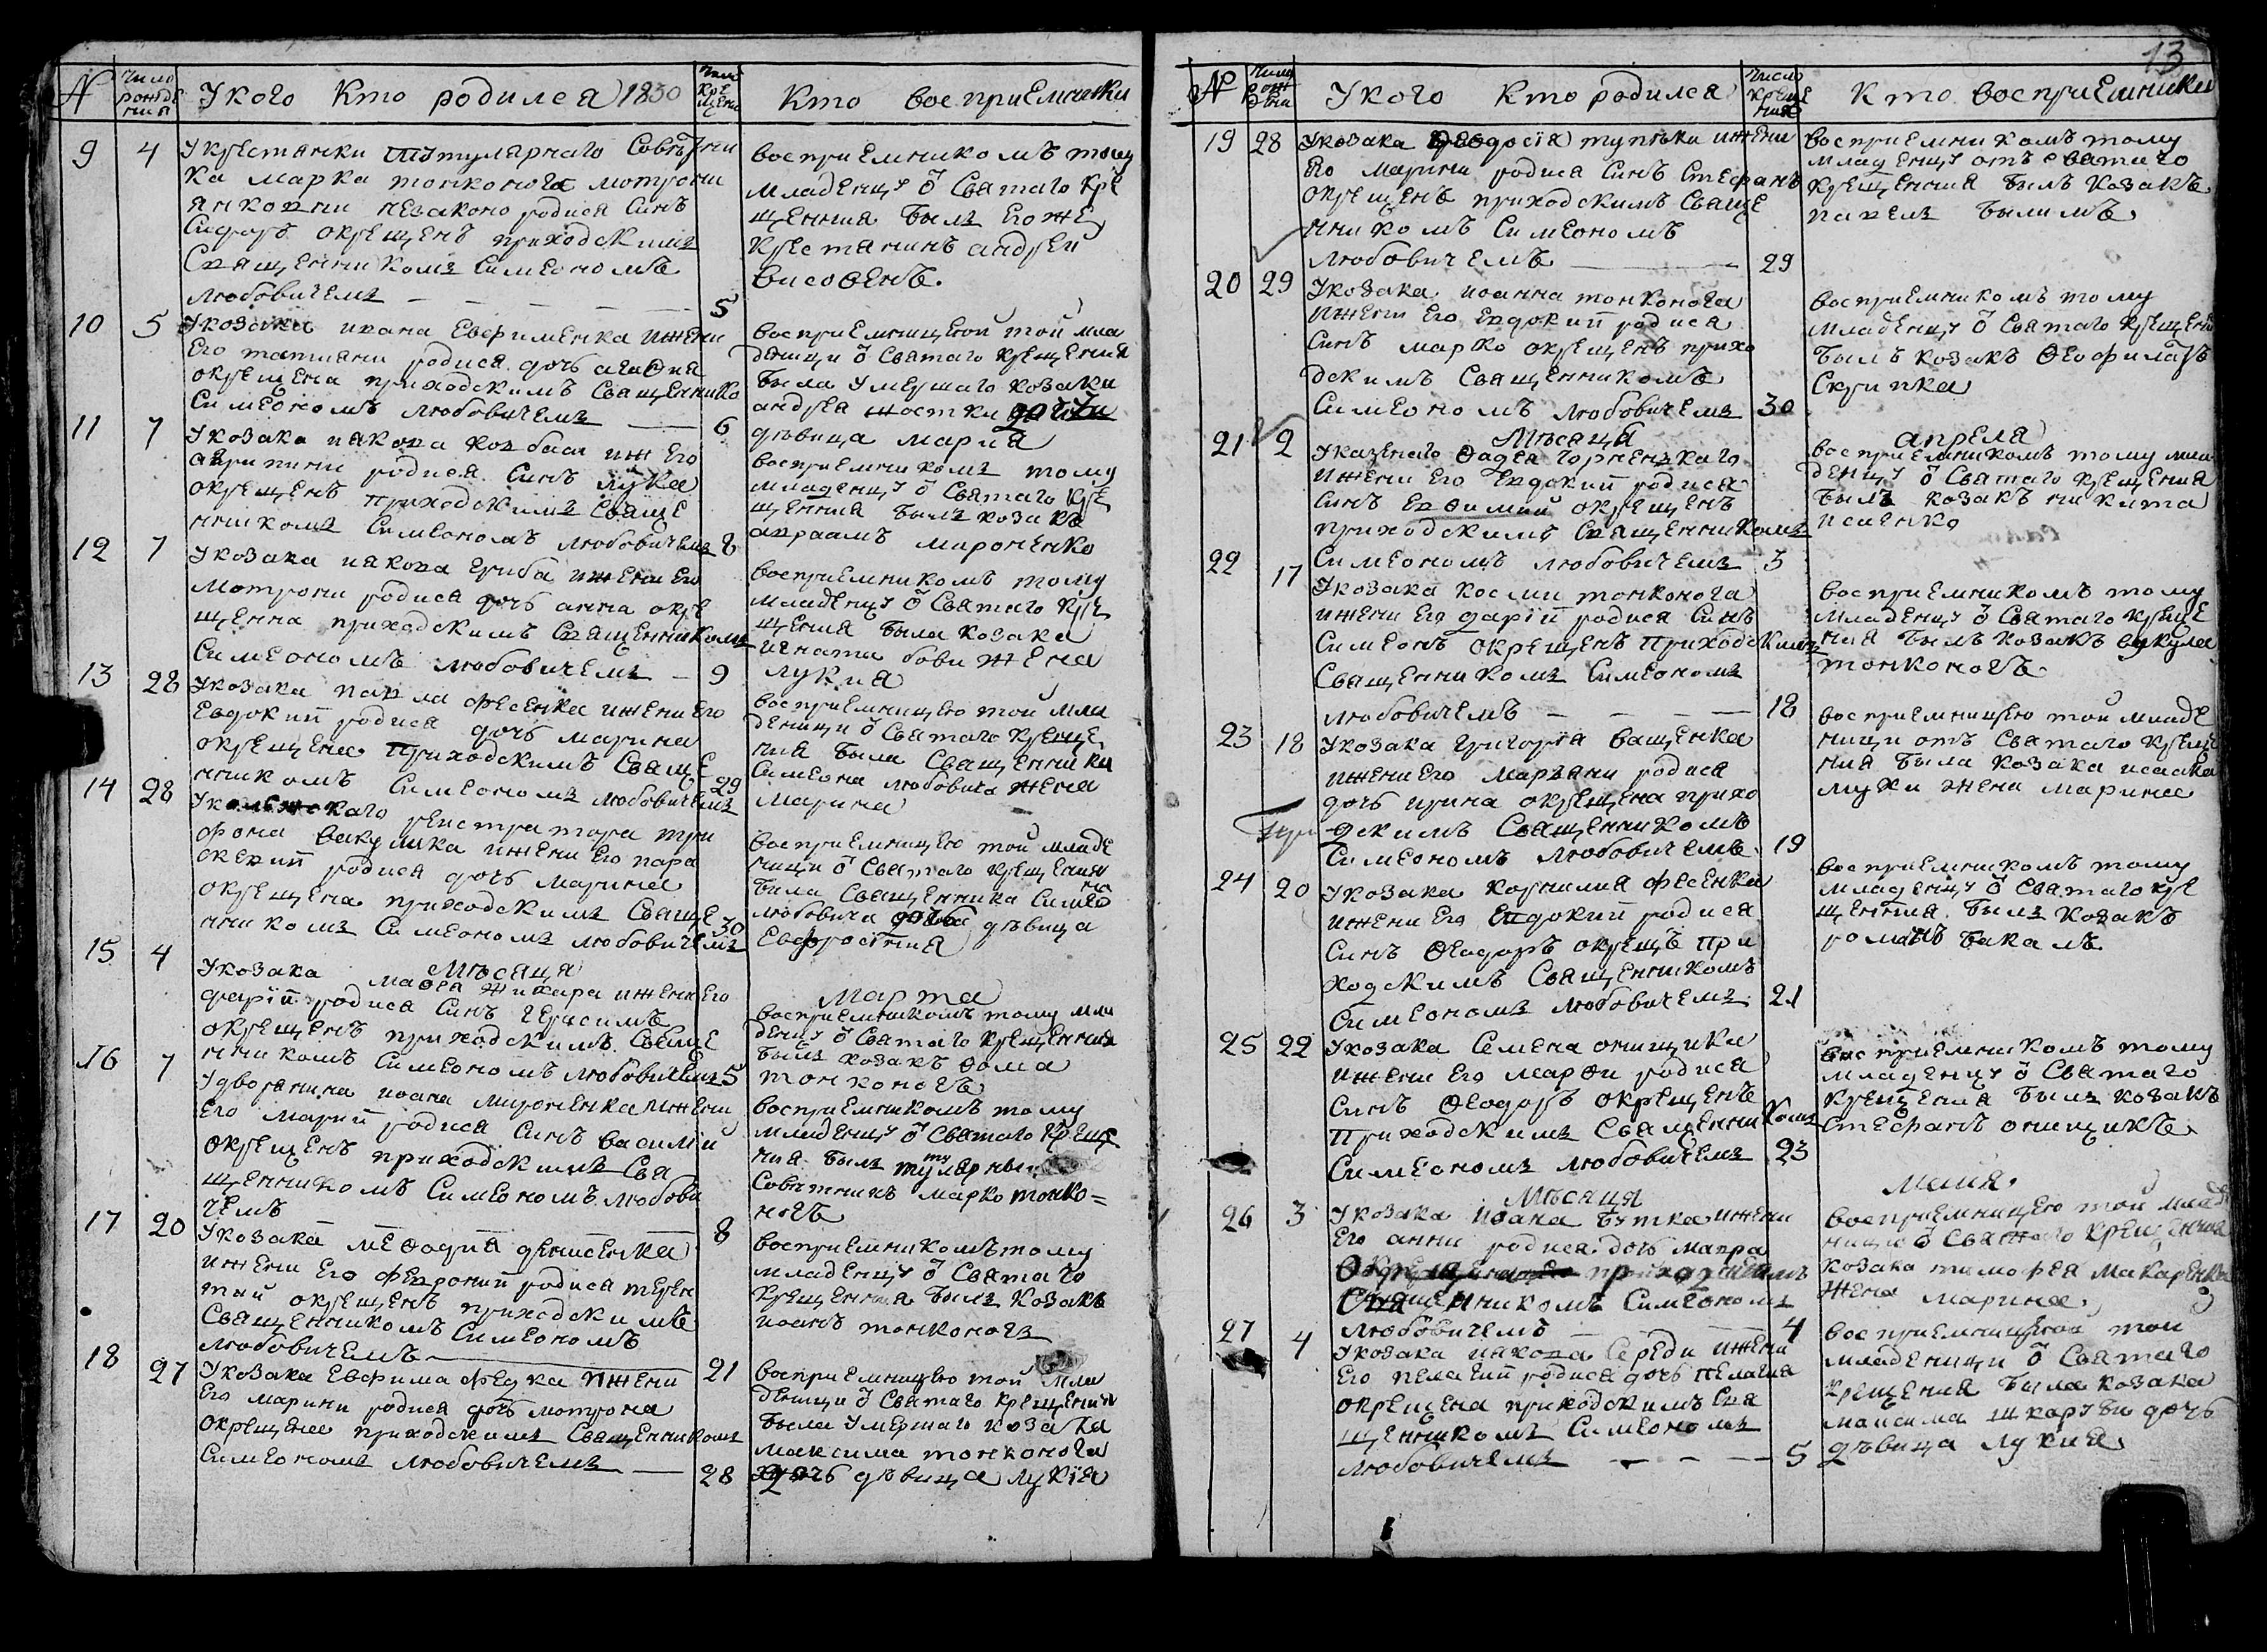 N
Число рожде ния
У кого Кто родился 1830
Чис Кре щени
Кто восприемники
9 4 У крестянки титулярнаго Советни
ка Марка тонконога мотрони
незаконо родися Синъ
окрещенъ приходскимъ
Священникомъ Симеономъ
любовичемъ 5
восприемникомъ тому
младенцу ѿ Святаго Кре
щения былъ Егоже
Крестянинъ андрей
висоѳенъ.
10 5 У козака ивана Евфименка и жени
Его татиани родися дочь агафия
окрещена приходскимъ Священнико
Симеономъ любовичемъ 6
восприемницеюй той мла
деници ѿ Святаго Крещения
была умершаго козака
андрея костки дочь
девица мария
11 7 У козака иакова ковбаси и ж Его
агрипини родися Синъ лука
окрещенъ приходскимъ Свяще
нникомъ Симеономъ любовичемъ 8
восприемникомъ тому
младенцу ѿ Святаго Кре
щения былъ козакъ
авраамъ мироненко
12 7 У козака иакова гриба и жени Его
мотрони родися дочь анна окре
щенна приходскимъ Священникомъ
Симеономъ любовичемъ 9
восприемникомъ тому
младенцу ѿ Святаго Кре
щения была козака
игната бови жена
лукия
13 28 У козака павла фесенка и жени Его
Евдокии родися дочь марина
окрещена приходскимъ Свяще
нникомъ Симеономъ любовичемъ 29
восприемницею той мла
деници ѿ Святаго Креще
ния была Священника
Симеона любовича жена
марина
14 28 регистратора три
фона вакулика и жени Его пара
скевии родися дочь марина
окрещена приходскимъ Свяще
нникомъ Симеономъ любовичемъ 30
восприемницею той младе
ници ѿ Святаго Крещения
была Священника Симео на
любовича дочь девица
Евфросиния
Месяца марта
15 4 У козака маѳея жихара и жени Его
дарии родися Синъ герасимъ
окрещенъ приходскимъ Свяще
нникомъ Симеономъ любовичемъ 5
восприемникомъ тому мла
денцу ѿ Святаго Крещения
былъ козакъ ѳома
тонконогъ
16 7 У дворянина иоана мироненка и жени
Его марии родися Синъ василий
окрещенъ приходскимъ Свя
щенникомъ Симеономъ любови
чемъ 8
восприемникомъ тому
младенцу ѿ Святаго Креще
ния былъ
Советникъ марко тонко=
ногъ
17 20 У козака меѳодия денисенка
и жени Его февронии родися терен
тий окрещенъ приходскимъ
Священникомъ Симеономъ
любовичемъ 21
восприемникомъ тому
младенцу ѿ Святаго
Крещения былъ козакъ
иоанъ тонконогъ
18 27 У козака Евфима федка и жени
Его марини родися дочь мотрона
окрещена приходскимъ Священникомъ
Симеономъ любовичемъ 28
восприемницею той мла
деници ѿ Святаго Крещения
была умершаго козака
максима тонконога
дочь девица лукия
13
N
Число рож дения
У кого Кто родился
Число Креще ния
Кто восприемники
19 28 У козака Ѳеодосія тупчки и жени
Его марини родися Синъ Стефанъ
окрещенъ приходскимъ Свяще
нникомъ Симеономъ
любовичемъ 29
восприемникомъ тому
младенцу отъ Святаго
Крещения былъ козакъ
павелъ былимъ
20 29 У козака иоанна тонконога
и жени Его Евдокии родися
Синъ марко окрещенъ прихо
дскимъ Священникомъ
Симеономъ любовичемъ 30
восприемникомъ тому
младенцу ѿ Святаго Крещения
былъ козакъ Ѳеофилактъ
Скрипка
Месяца апреля
21 2 У казеннаго Ѳадея горнензкаго
и жени Его Евдокии родися
Синъ Евѳимий окрещенъ
приходскимъ Священникомъ
Симеономъ любовичемъ 3
восприемникомъ тому мла
денцу ѿ Святаго Крещения
былъ козакъ никита
исаенко
22 17 У козака космы тонконога
и жени Его дарии родися Синъ
Симеонъ окрещенъ приходскимъ
Священникомъ Симеономъ
любовичемъ 18
восприемникомъ тому
младенцу ѿ Святаго Креще
ния былъ козакъ вукула
тонконогъ
23 18 У козака григория ващенка
и жени Его маръяни родися
дочь ирина окрещена прихо
дскимъ Священникомъ
Симеономъ любовичемъ 19
восприемницею той младе
ници отъ Святаго Креще
ния была козака исаака
мухи жена марина
24 20 У козака корнилия фесенка
и жени Его Евдокии родися
Синъ Ѳеодоръ окрещъ при
ходскимъ Священникомъ
Симеономъ любовичемъ 21
восприемникомъ тому
младенцу ѿ Святаго Кре
щения былъ козакъ
романъ бакалъ
25 22 У козака Семена онищика
и жени Его марѳи родися
Синъ Ѳеодоръ окрещенъ
приходскимъ Священникомъ
Симеономъ любовичемъ 23
восприемникомъ тому
младенцу ѿ Святаго
Крещения былъ козакъ
Стефанъ онищикъ
Месяца маия
26 3 У козака иоана бутка и жени
Его анни родися дочь мавра
окрещена приходскимъ
Священникомъ Симеономъ
любовичемъ 4
восприемницею той младе
ници ѿ Святаго Крещения
козака тимофея макаренка
жена марина
27 4 У козака иакова Середи и жени
Его пелагии родися дочь пелагия
окрещена приходскимъ Свя
щенникомъ Симеономъ
любовичемъ 5
восприемницеюй той
младеници ѿ Святаго
Крещения была козака
максима шкарубы дочь
девица лукия